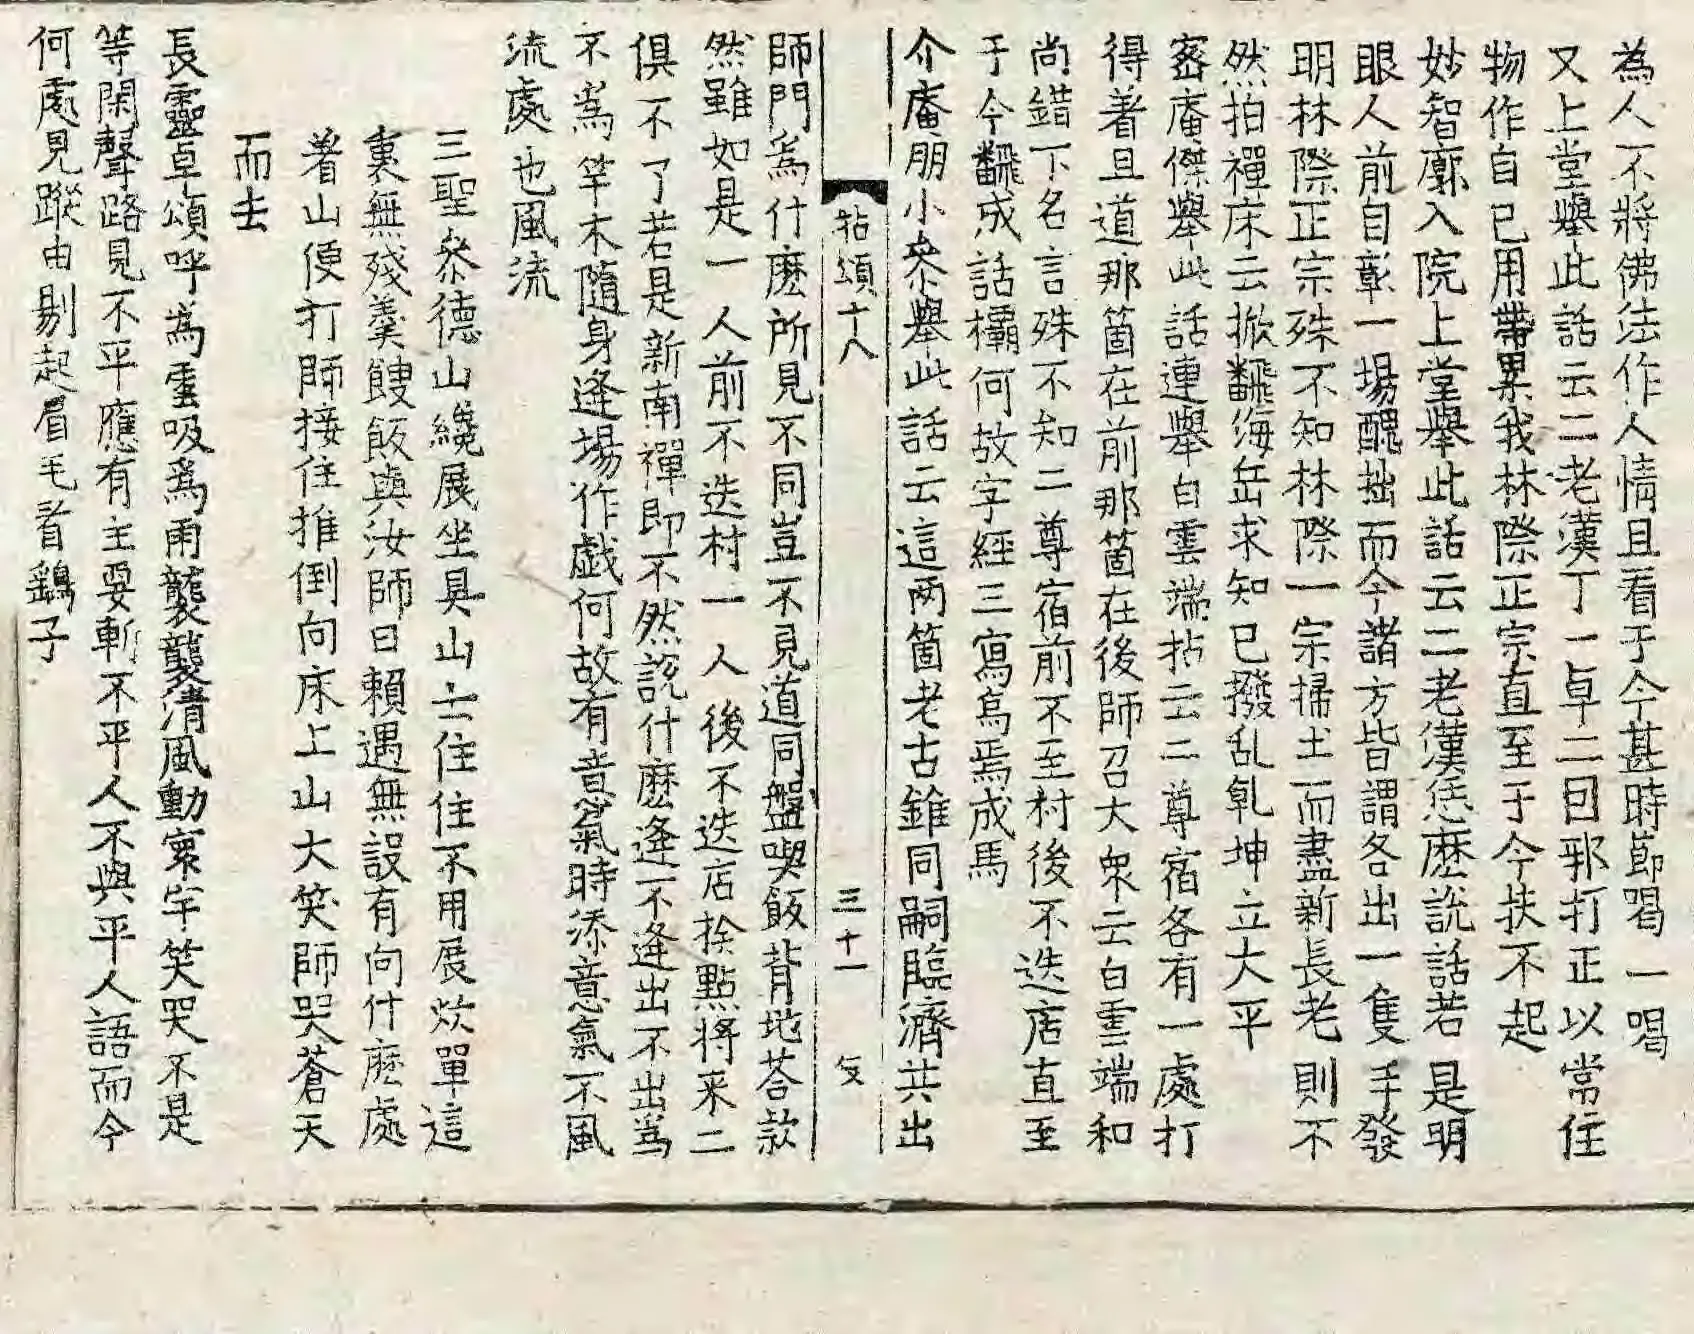 為人不將佛法作人情且看于今甚時節喝一喝
又上堂舉此話云二老漢丁一卓二回邪打正以常住
物作自己用帶累我林際正宗直至于今扶不起
妙智廓入院上堂舉此話云二老漢恁麽說話若是明
眼人前自彰一場醜拙而今諸方皆謂各出一隻手發
明林際正宗殊不知林際一宗掃土而盡新長老則不
然拍禪床云掀飜海岳求知己撥乱乹坤立大平
密庵傑舉此話連舉白雲端拈云二尊宿各有一處打
得著且道那箇在前那箇在後師召大衆云白雲端和
尚錯下名言殊不知二尊宿前不至村後不迭店直至
于今飜成話欛何故字經三寫烏焉成馬
介庵朋小叅舉此話云這两箇老古錐同嗣臨濟共出
拈頌十八 三十一
師門爲什麽所見不同豈不見道同盤喫飯背地荅款
然雖如是一人前不迭村一人後不迭店捡點將来二
俱不了若是新南禪即不然說什麽逢不逢出不出爲
不爲竿木隨身逢場作戯何故有意氣時添意氣不風
流處也風流
三聖叅德山纔展坐具山云住住不用展炊單這
裏無殘羹餿飯與汝師曰賴遇無設有向什麽處
着山便打師接住推倒向床上山大笑師哭蒼天
而去
長靈卓頌呼爲雲吸爲雨襲襲清風動寰宇笑哭不是
等閑聲路見不平應有主要斬不平人不與平人語而今
何處見蹤由剔起眉毛看鷂子